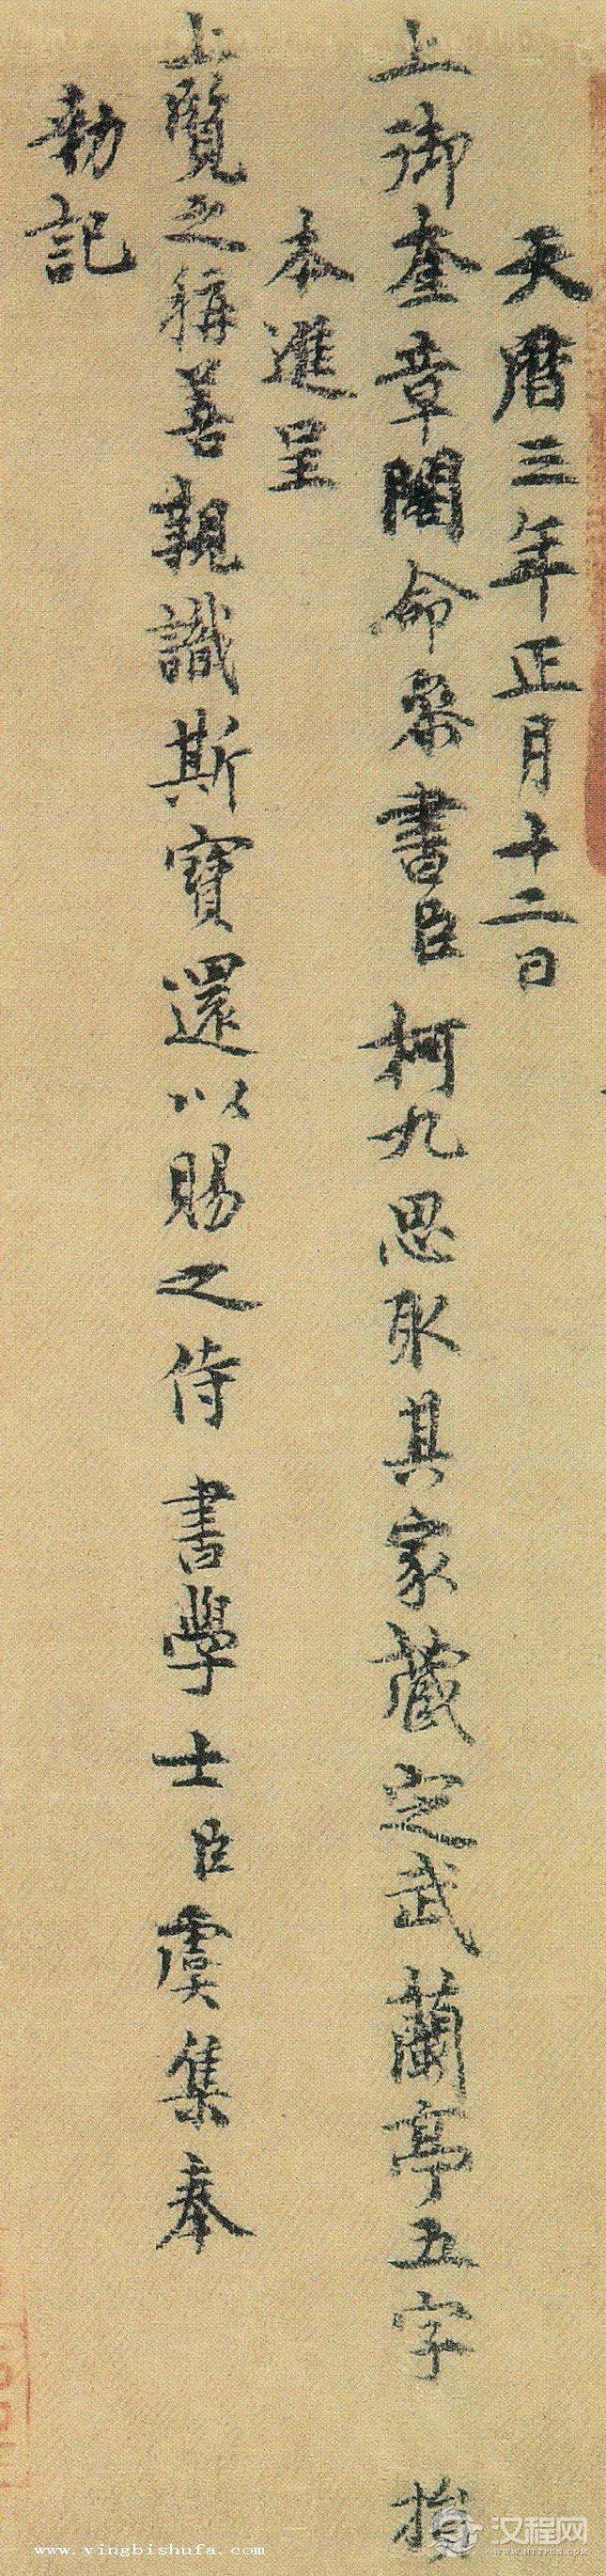 天曆三年正月十二日
上御奎章閣命參書臣柯九思取其家藏定武蘭亭五字損
本進呈
上覽之稱善親識斯寶還以賜之侍書學士臣虞集奉
勅記
www.yingbishufa.com
汉程网
WWW.HTTPCN.COM